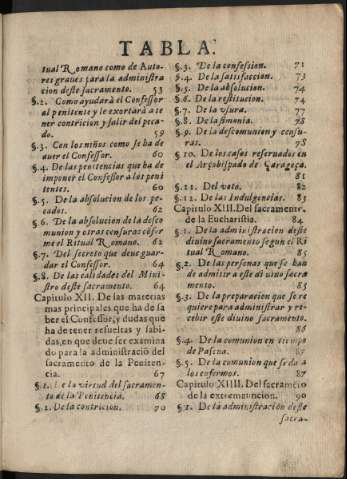 TABLA.
tual Romano como de Auto-
res graues para la administra
cion deste sacramento. 53
§.2. Como ayudarà el Confessor
al penitente y le exortarà a te
ner contricion y salir del peca-
do. 59
§.3. Con los niños como se ha de
auer el Confessor. 60
§.4. De las penitencias que ha de
imponer el Confessor a los peni
tentes. 60
§.5. De la absolucion de los pe-
cados. 62
§.6. De la absolucion de la desco
munion y otras censuras cõfor
me el Ritual Romano. 62
§.7. Del secreto que deue guar-
dar el Confessor. 64
§.8. De las calidades del Mini-
stro deste sacramento. 64
Capitulo XII. De las materias
mas principales que ha de sa
ber el Confessor, y dudas que
ha de tener resueltas y sabi-
das, en que deue ser examina
do para la administraciõ del
sacramento de la Peniten-
cia. 67
§.1. De la virtud del sacramen-
to de la Penitencia. 68
§.2. De la contricion. 70
§.3. De la confession. 71
§.4. De la satisfaccion. 73
§.5. De la absolucion. 74
§.6. De la restitucion. 74
§.7. De la vsura. 77
§.8. De la simonia. 78
§.9. De la descomunion y censu-
ras. 78
§.10. De los casos reseruados en
el Arçobispado de Çaragoça.
81
§.11. Del voto. 82
§.12. De las Indulgencias. 83
Capitulo XIII. Del sacramento
de la Eucharistia. 84
§.1. De la administracion deste
diuino sacramento segun el Ri
tual Romano. 85
§.2. De las personas que se han
de admitir a este diuino sacra
mento. 85
§.3. De la preparacion que se re
quiere para administrar y re-
cebir este diuino sacramento.
86
§.4. De la comunion en tiempo
de Pascua. 87
§.5. De la comunion que se da a
los enfermos. 87
Capitulo XIIII. Del sacramẽto
de la extremauncion. 90
§.1. De la administracion deste
sacra-